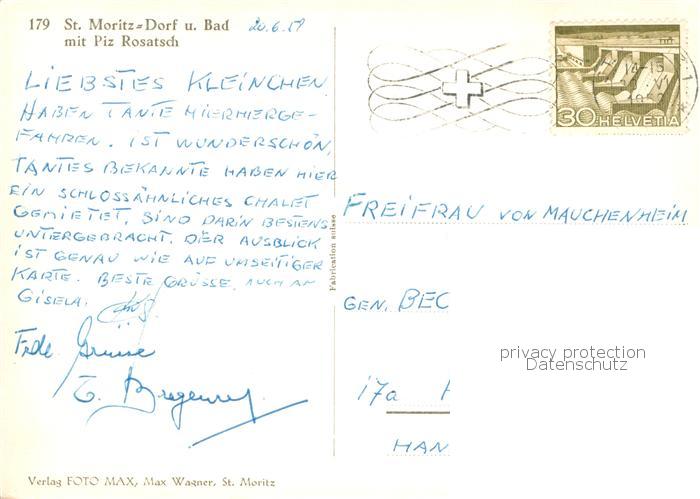 179 St. Moritz=Dorf u. Bad
mit Piz Rosatsch
20.6.51
LIEBSTES KLEINCHEN.
HABEN TANTE HIERHERGE-
FAHREN. IST WUNDERSCHÖN,
TANTES BEKANNTE HABEN HIER
EIN SCHLOSSÄHNLICHES CHALET
GEMIETET, SIND DARIN BESTENS
UNTERGEBRACHT. DER AUSBLICK
IST GENAU WIE AUF UMSEITIGER
KARTE. BESTE GRÜSSE, AUCH AN
GISELA.
Grüsse
Verlag FOTO MAX, Max Wagner, St. Moritz
Fabrication suisse
30 HELVETIA
FREIFRAU VON MAUCHENHEIM
GEN. BEC
17a H
HAN
privacy protection
Datenschutz